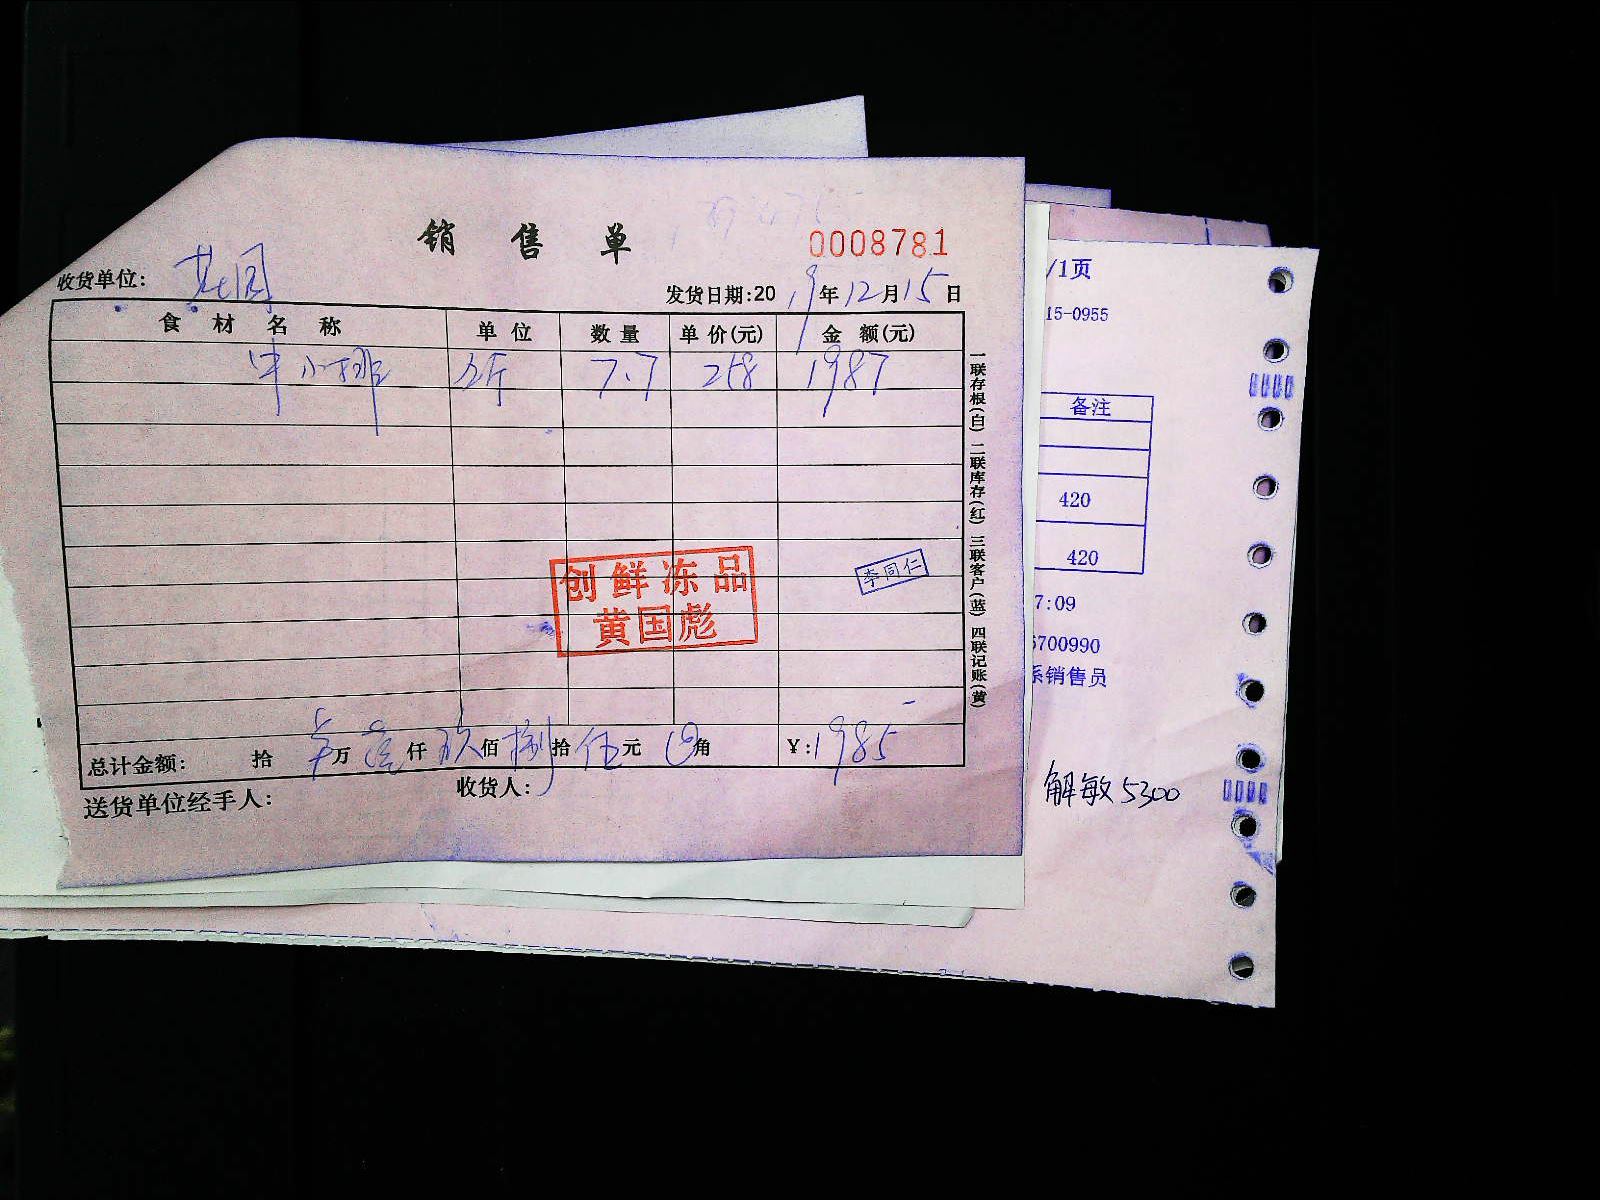 销售单
0008781
收货单位: 花园
发货日期:2019年12月15日
食材名称 单位 数量 单价(元) 金额(元)
牛小排 公斤 7.7 258 1987
创鲜冻品
黄国彪
李同仁
总计金额: 拾 万 壹仟 玖佰 捌拾 伍元 角 ¥:1985
送货单位经手人: 收货人:
一联存根(白) 二联库存(红) 三联客户(蓝) 四联记账(黄)
/1页
15-0955
备注
420
420
7:09
700990
系销售员
解敏5300